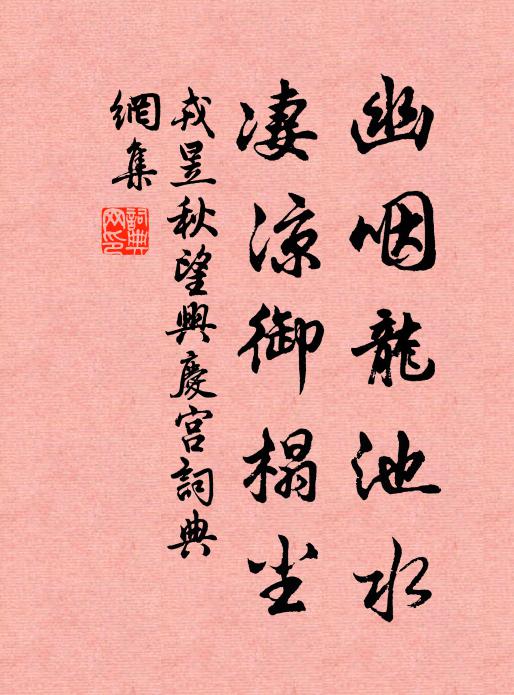 幽咽龍池水
凄涼御榻尘
戎昱秋望興慶宫詞典
網集
詞典
网印